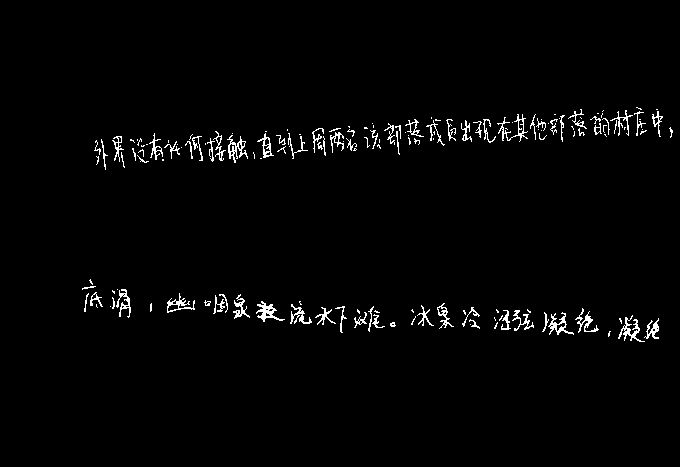 外界没有任何接触,直到上周两名该部落成员出现在其他部落的村庄中,
底滑,幽咽泉流水下滩。冰泉冷涩弦凝绝,凝绝